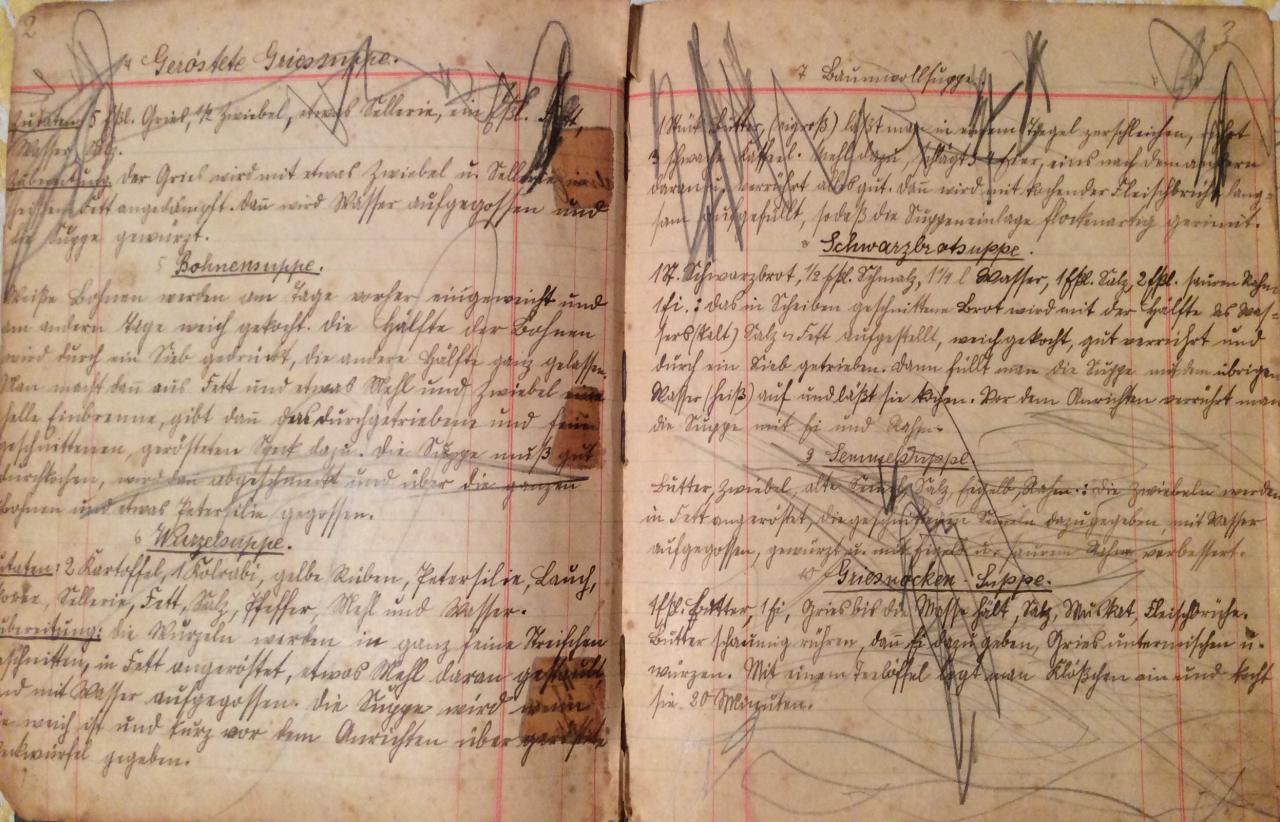 2
4 Geröstete Griessuppe.
Zutaten: 5 Eßl. Gries, 1/2 Zwiebel, etwas Sellerie, ein Eßl. Fett,
Wasser, Salz.
Zubereitung: Der Gries wird mit etwas Zwiebel u. Sellerie in
Fett angedämpft. Dañ wird Wasser aufgegossen und
die Suppe gewürzt.
5 Bohnensuppe.
Weiße Bohnen werden am Tage vorher eingeweicht und
am andern Tage weich gekocht. Die Hälfte der Bohnen
wird durch ein Sieb gedrückt, die andere Hälfte ganz gelassen.
Man macht dañ aus Fett und etwas Mehl und Zwiebel eine
helle Einbrenne, gibt dañ das durchgetriebene und fein
geschnittenen, gerösteten Speck dazu. Die Suppe muß gut
durchkochen, wird dañ abgeschmeckt und über die ganzen
Bohnen und etwas Petersilie gegossen.
6 Wurzelsuppe.
utaten: 2 Kartoffel, 1 Kolrabi, gelbe Rüben, Petersilie, Lauch,
Sellerie, Fett, Salz, Pfeffer, Mehl und Wasser.
ubereitung: Die Wurzeln werden in ganz feine Streifchen
schnitten, in Fett angeröstet, etwas Mehl daran gestäubt
nd mit Wasser aufgegossen. Die Suppe wird wenn
e weich ist und kurz vor dem Anrichten über geröstete
eckwürfel gegeben.
3
7 Baumwollsuppe
1 Stück Butter, (eigroß) läßt man in einem Tiegel zerschleichen, rührt
3 schwache Kaffeel. Mehl dazu, schlägt 3-4 Eier, eines nach dem andern
daran u. verrührt alles gut. Dañ wird mit kochender Fleischbrühe lang-
sam aufgefüllt, sodaß die Suppeneinlage flockenartig gerinnt.
8 Schwarzbrotsuppe.
1 St. Schwarzbrot, 1/2 Eßl. Schmalz, 1 1/4 l Wasser, 1 Eßl. Salz, 2 Eßl. sauren Rahm
1 Ei.: Das in Scheiben geschnittene Brot wird mit der Hälfte des Was-
sers (kalt) Salz u. Fett aufgestellt, weichgekocht, gut verrührt und
durch ein Sieb getrieben. Dann füllt man die Suppe mit dem übrigen
Wasser (heiß) auf und läßt sie kochen. Vor dem Anrichten verrührt man
die Suppe mit Ei und Rahm.
9 Semmelsuppe
Butter, Zwiebel, alte Semel, Salz, Eigelb, Rahm.: Die Zwiebeln werden
in Fett angeröstet, die geschnittenen Semeln dazugegeben, mit Wasser
aufgegossen, gewürzt u. mit Eigelb u. saurem Rahm verbessert.
10 Griesnocken-Suppe.
1 Eßl. Butter, 1 Ei, Gries bis die Masse hält, Salz, Muskat, Fleischbrühe.
Butter schaumig rühren, dañ Ei dazu geben, Gries untermischen u.
würzen. Mit einem Teelöffel legt man Klößchen ein und kocht
sie 20 Minuten.